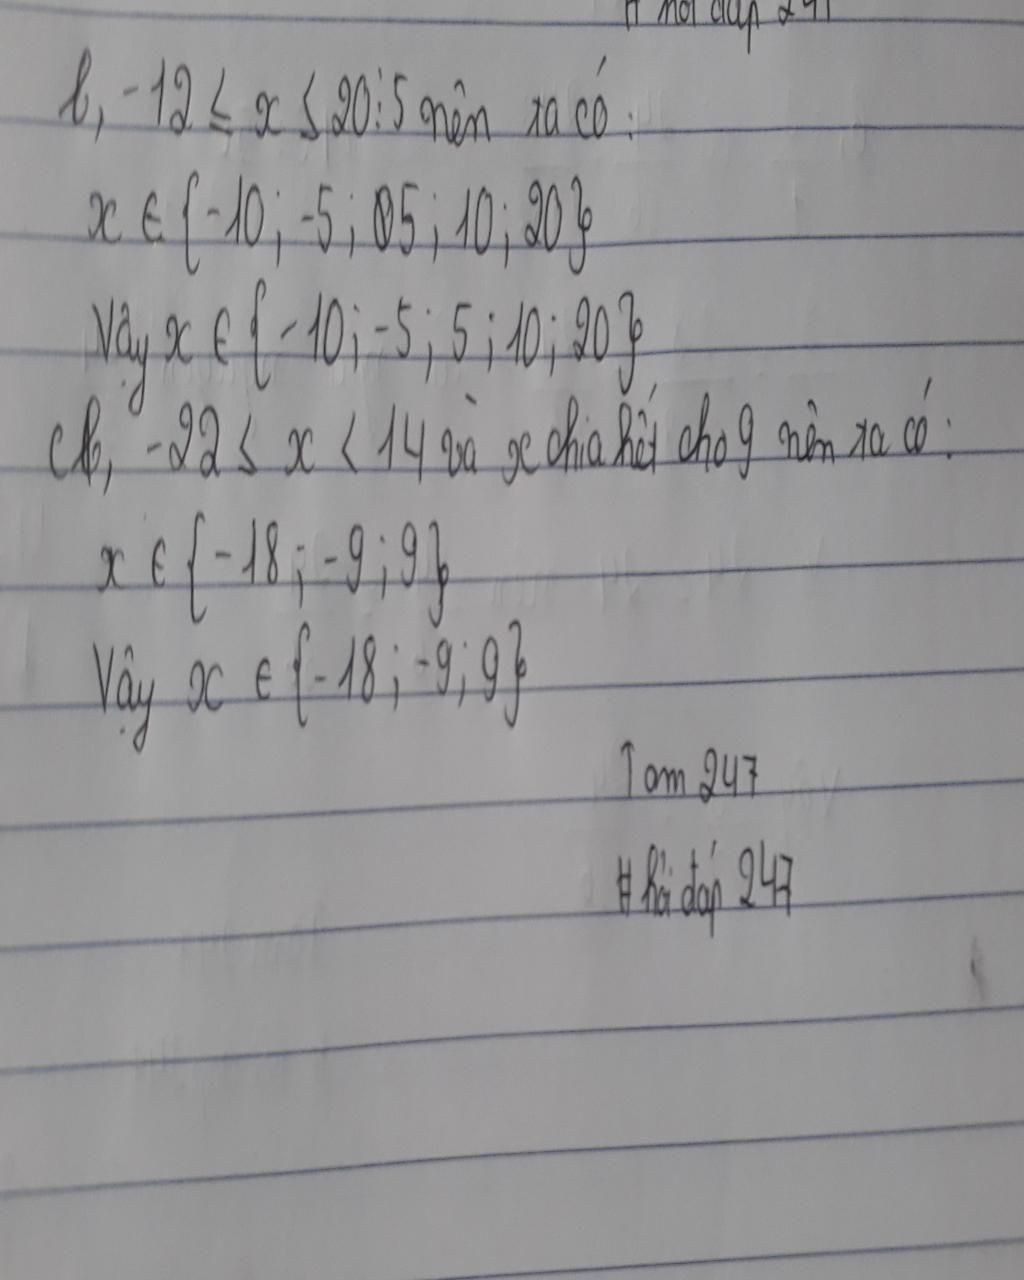 # hỏi đáp 247
b, -12 ≤ x ≤ 20⋮5 nên ta có:
x ∈ {-10; -5; 05; 10; 20}
Vậy x ∈ {-10; -5; 5; 10; 20}
c, -22 ≤ x < 14 và x chia hết cho 9 nên ta có:
x ∈ {-18; -9; 9}
Vậy x ∈ {-18; -9; 9}
Tam 247
# hỏi đáp 247